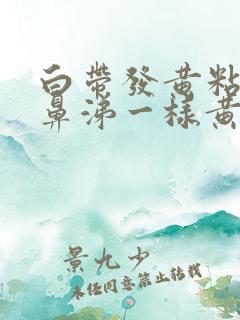 白带發黄粘
鼻涕一样黄
景九少
未经同意禁止转载